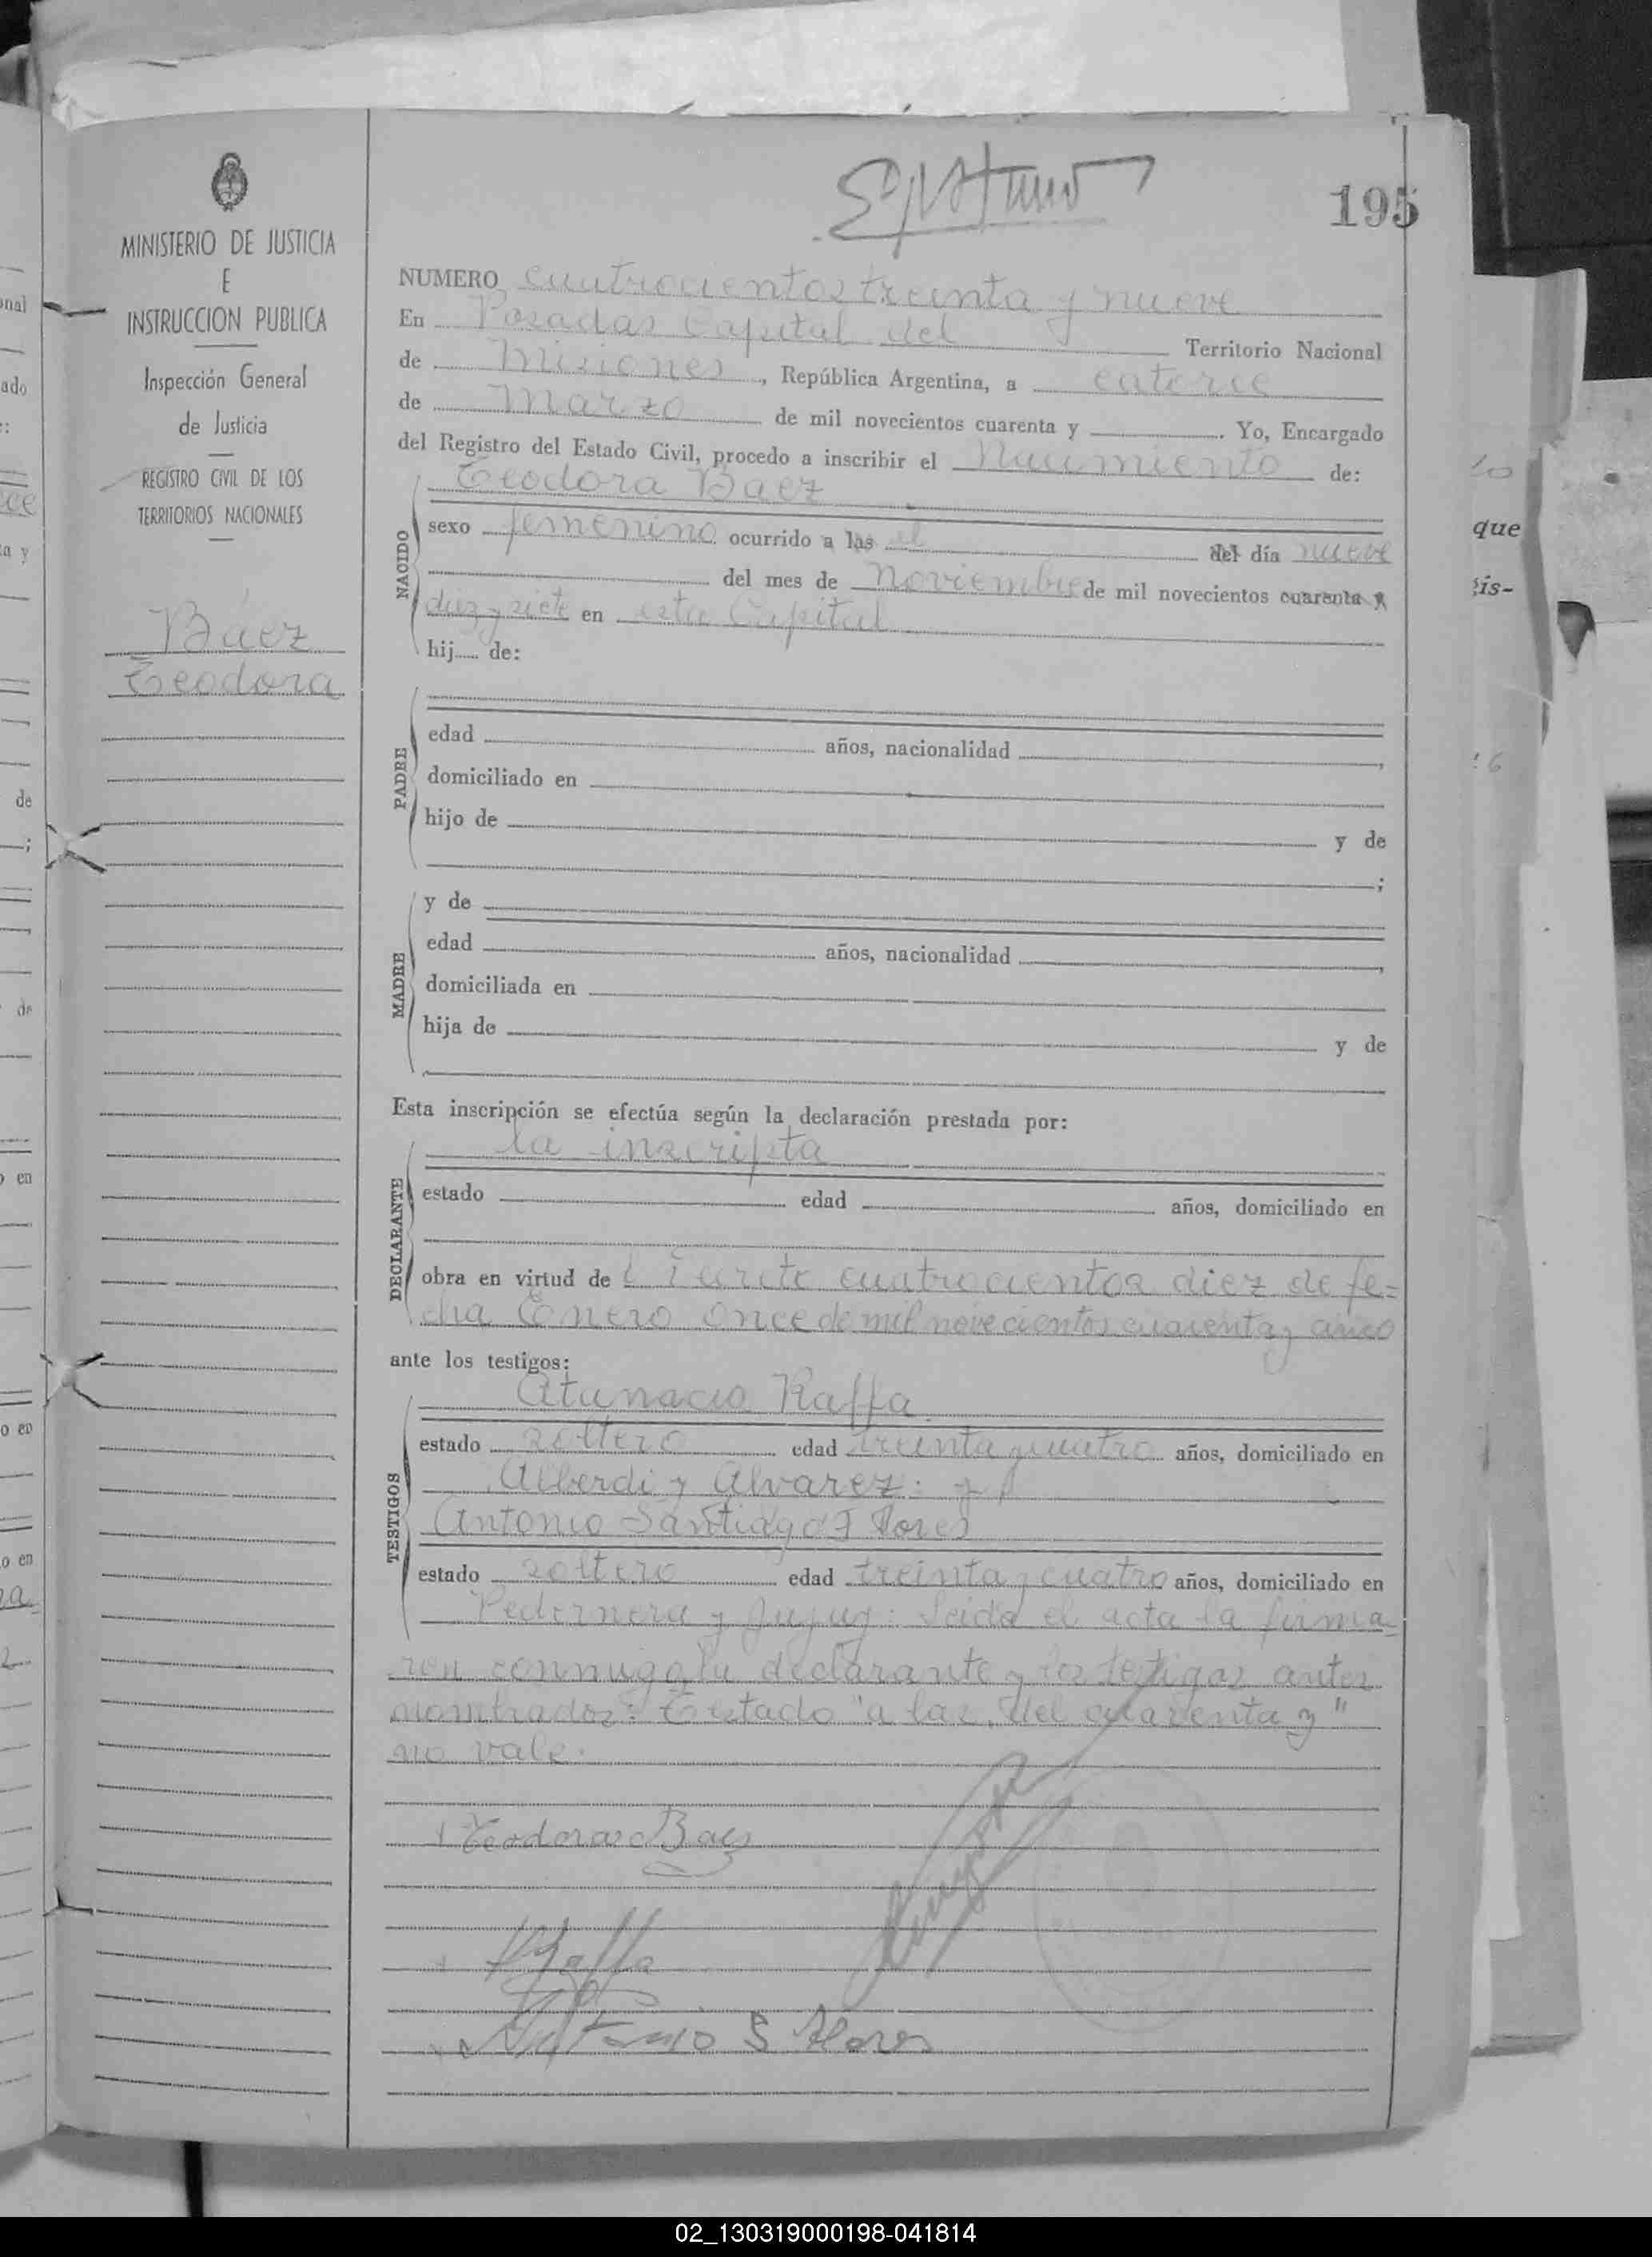 195
MINISTERIO DE JUSTICIA
E
INSTRUCCION PUBLICA
Inspección General
de Justicia
REGISTRO CIVIL DE LOS
TERRITORIOS NACIONALES
Báez
Teodora
NUMERO cuatrocientos treinta y nueve
En Posadas Capital del Territorio Nacional
de Misiones, República Argentina, a catorce
de Marzo de mil novecientos cuarenta y Yo, Encargado
del Registro del Estado Civil, procedo a inscribir el Nacimiento de:
Teodora Baez
NACIDO
sexo femenino ocurrido a las el del día nueve
del mes de Noviembre de mil novecientos cuarenta y
diez y siete en esta Capital
hij de:
PADRE
edad años, nacionalidad ,
domiciliado en
hijo de y de
;
MADRE
y de
edad años, nacionalidad ,
domiciliada en
hija de y de
Esta inscripción se efectúa según la declaración prestada por:
DECLARANTE
la inscripta
estado edad años, domiciliado en
obra en virtud de cuatrocientos diez de fe=
cha Enero once de mil novecientos cuarenta y cinco
ante los testigos:
TESTIGOS
Atanacio Raffa
estado soltero edad treinta y cuatro años, domiciliado en
Alberdi y Alvarez: y
Antonio Santiago Flores
estado soltero edad treinta y cuatro años, domiciliado en
Pedernera y Jujuy: Leida el acta la firma=
ron conmigo la declarante y los testigos antes
nombrados: Testado "a las, del cuarenta y"
no vale.
Teodora Baez
Raffa
Antonio S Flores
onal
ado
de
en
o en
que
sis-
02_130319000198-041814